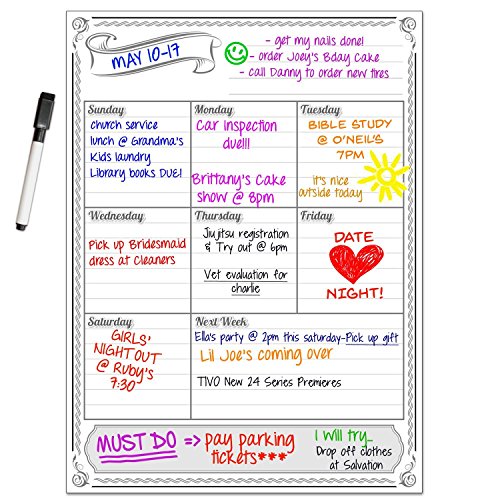 MAY 10-17
- get my nails done!
- order Joey's Bday Cake
- call Danny to order new tires
Sunday
church service
lunch @ Grandma's
Kids laundry
Library books DUE!
Monday
Car Inspection
due!!!
Brittany's Cake
show @ 8pm
Tuesday
BIBLE STUDY
@ O'NEIL'S
7PM
it's nice
outside today
Wednesday
Pick up Bridesmaid
dress at Cleaners
Thursday
Jiujitsu registration
& Try out @ 6pm
Vet evaluation for
charlie
Friday
DATE
NIGHT!
Saturday
GIRLS'
NIGHT OUT
@ RUBY'S
7:30
Next Week
Ella's party @ 2pm this saturday-Pick up gift
Lil Joe's coming over
TIVO New 24 Series Premieres
MUST DO => pay parking
tickets***
I will try...
Drop off clothes
at Salvation